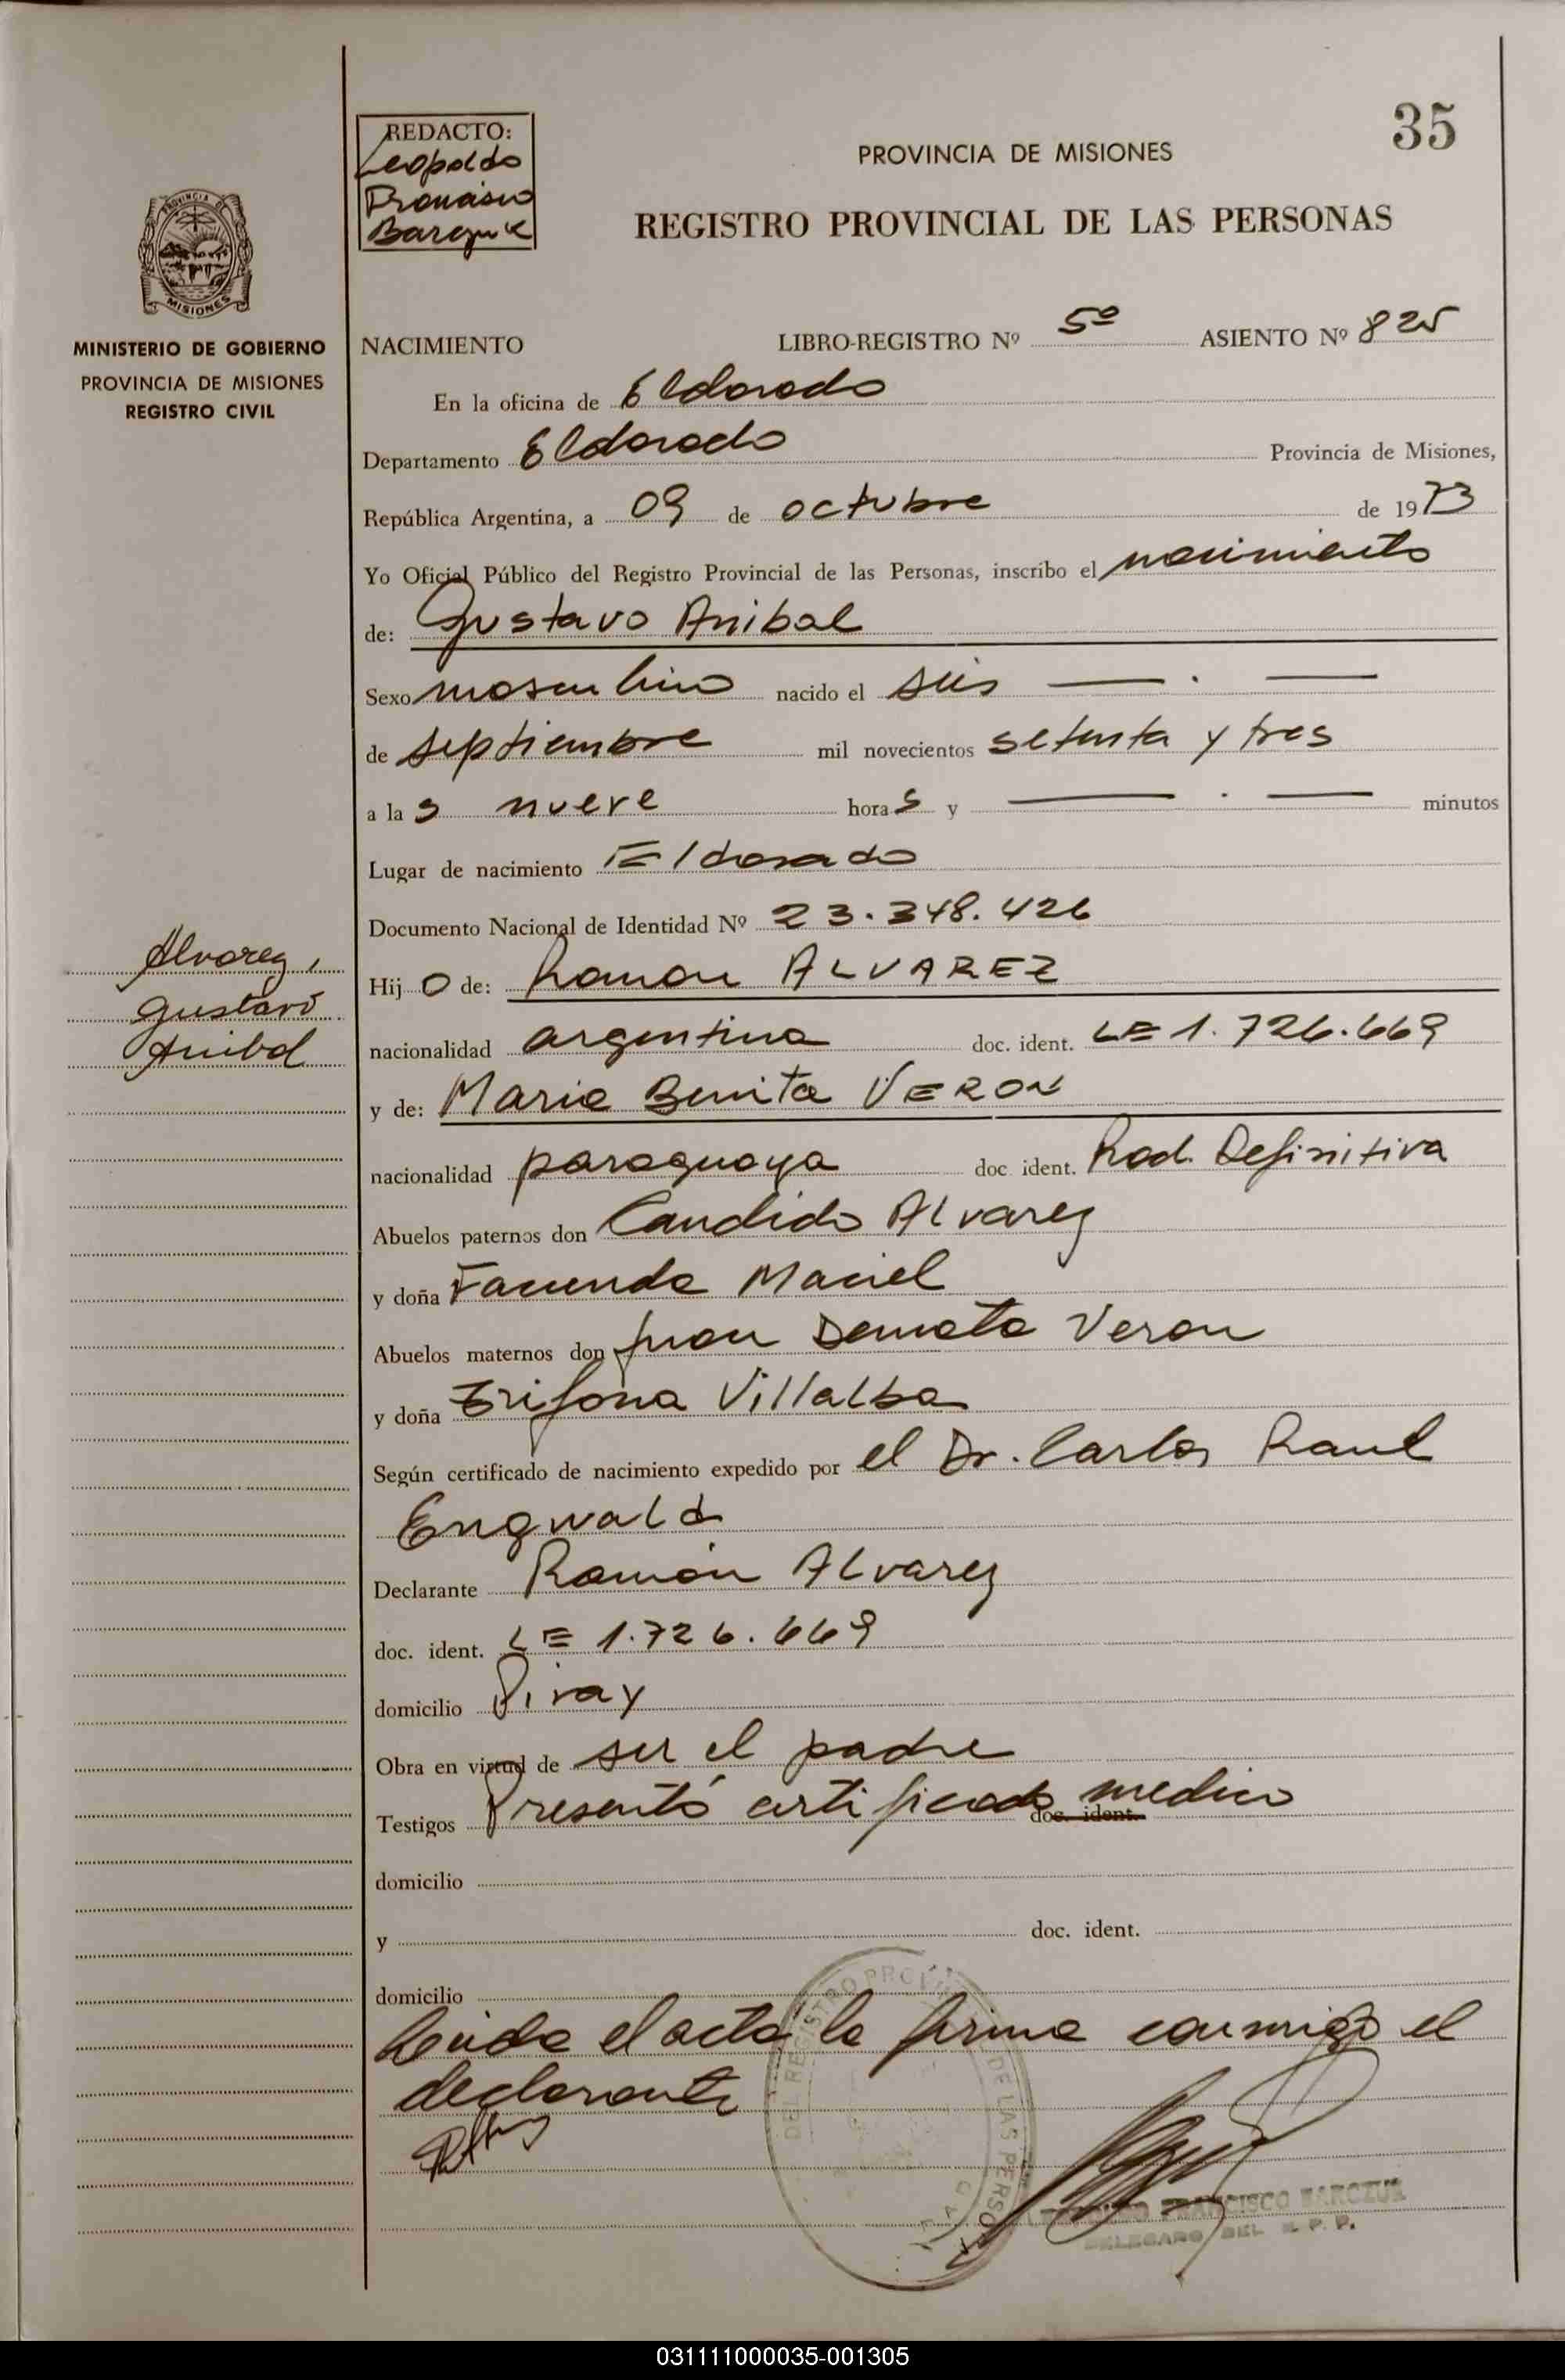 35
REDACTO:
Leopoldo
Francisco
Barczuk
PROVINCIA DE MISIONES
REGISTRO PROVINCIAL DE LAS PERSONAS
PROVINCIA DE
MISIONES
MINISTERIO DE GOBIERNO
PROVINCIA DE MISIONES
REGISTRO CIVIL
NACIMIENTO LIBRO-REGISTRO Nº 5º ASIENTO Nº 825
En la oficina de Eldorado
Departamento Eldorado Provincia de Misiones,
República Argentina, a 09 de octubre de 1973
Yo Oficial Público del Registro Provincial de las Personas, inscribo el nacimiento
de: Gustavo Anibal
Sexo masculino nacido el seis
de septiembre mil novecientos setenta y tres
a la s nueve hora s y minutos
Lugar de nacimiento Eldorado
Documento Nacional de Identidad Nº 23.348.426
Alvarez,
Gustavo
Anibal
Hij o de: Ramon ALVAREZ
nacionalidad argentina doc. ident. LE 1.726.669
y de: Maria Benita VERON
nacionalidad paraguaya doc. ident. Rad. Definitiva
Abuelos paternos don Candido Alvarez
y doña Facunda Maciel
Abuelos maternos don Juan Demata Veron
y doña Trifona Villalba
Según certificado de nacimiento expedido por el Dr. Carlos Raul
Engwald
Declarante Ramón Alvarez
doc. ident. LE 1.726.669
domicilio Piray
Obra en virtud de ser el padre
Testigos Presentó certificado medico doc. ident.
domicilio
y doc. ident.
domicilio
Leida el acta la firma conmigo el
declarante
DEL REGISTRO PROVINCIAL DE LAS PERSONAS
FRANCISCO BARCZUK
DELEGADO DEL R. P. P.
031111000035-001305